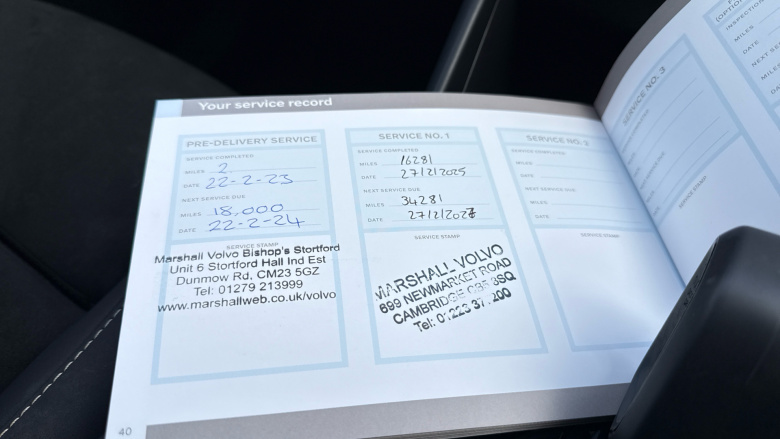 Your service record
PRE-DELIVERY SERVICE
SERVICE COMPLETED
MILES 2
DATE 22-2-23
NEXT SERVICE DUE
MILES 18,000
DATE 22-2-24
SERVICE STAMP
Marshall Volvo Bishop's Stortford
Unit 6 Stortford Hall Ind Est
Dunmow Rd, CM23 5GZ
Tel: 01279 213999
www.marshallweb.co.uk/volvo
SERVICE NO. 1
SERVICE COMPLETED
MILES 16281
DATE 27/2/2025
NEXT SERVICE DUE
MILES 34281
DATE 27/2/2027
SERVICE STAMP
MARSHALL VOLVO
699 NEWMARKET ROAD
CAMBRIDGE 8SQ
Tel: 01223 200
SERVICE NO. 2
SERVICE COMPLETED
MILES
DATE
NEXT SERVICE DUE
MILES
DATE
SERVICE STAMP
SERVICE NO. 3
SERVICE STAMP
INSPECTION
MILES
DATE
NEXT
MILES
40